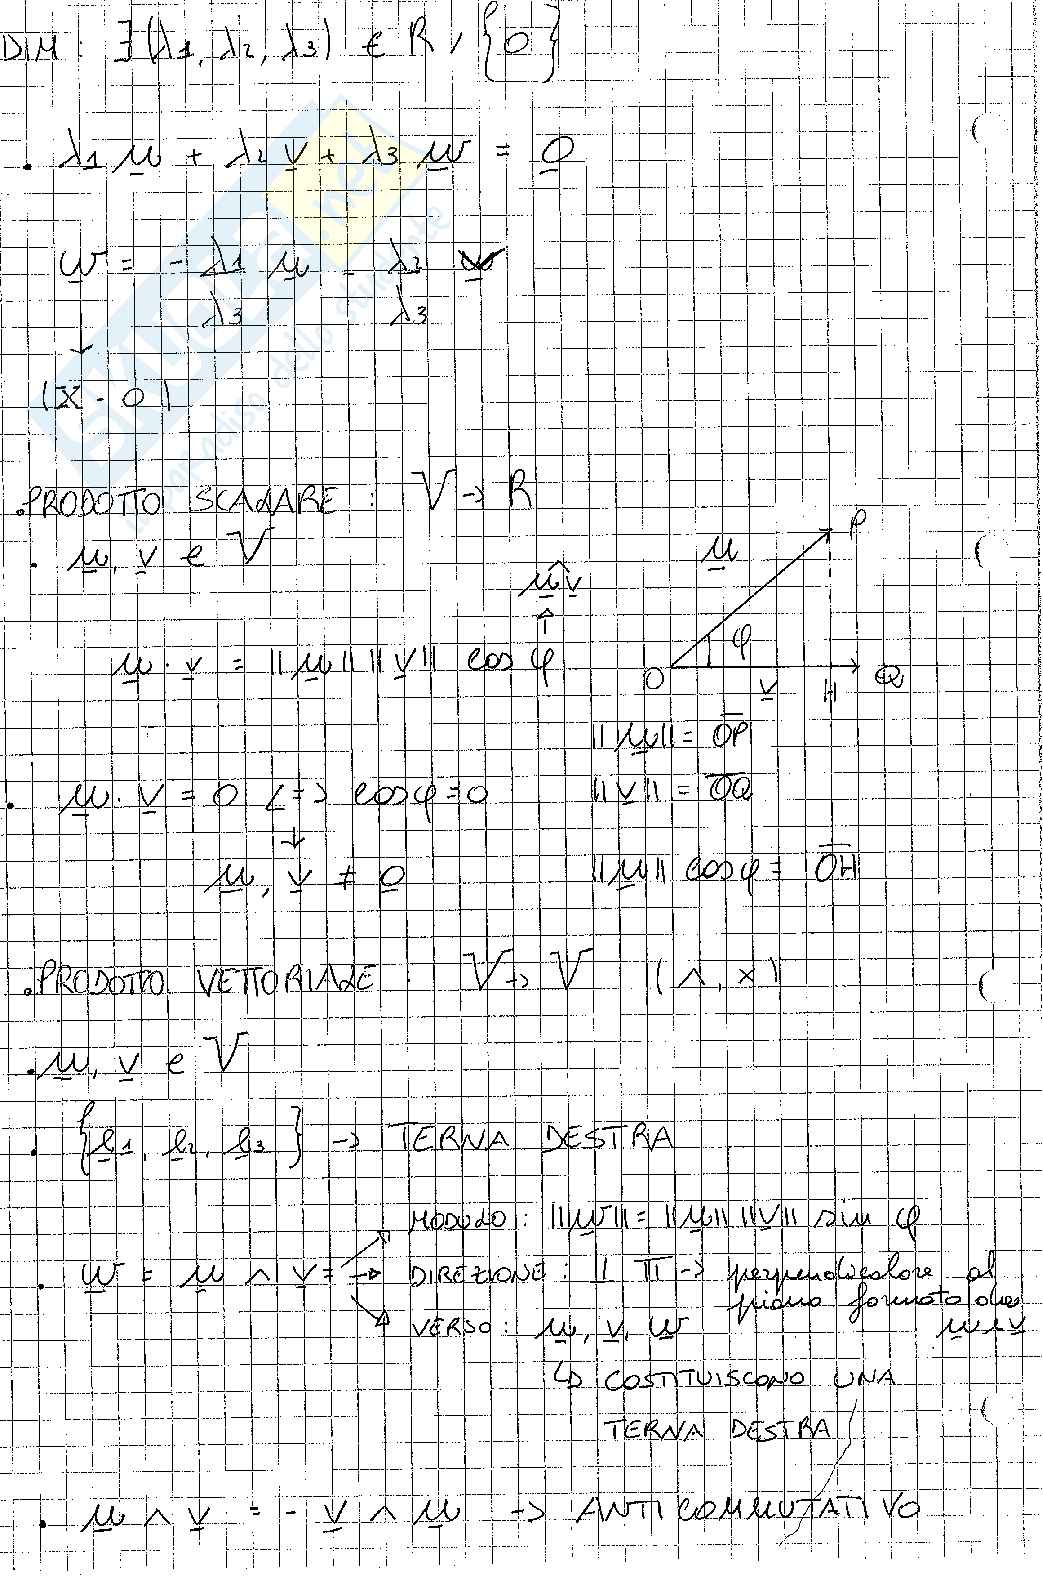 DIM: ∃(λ1, λ2, λ3) ∈ R \ {0}
. λ1 u + λ2 v + λ3 w = 0
w = - λ1 u - λ2 v
λ3 λ3
↓
(X - O)
. PRODOTTO SCALARE: V → R
. u, v ∈ V
u^v
↑
u · v = ||u|| ||v|| cos φ
u
P
φ
O
v
H
Q
||u|| = OP
. u · v = 0 <=> cosφ = 0
||v|| = OQ
↓
u, v ≠ 0
||u|| cosφ = OH
. PRODOTTO VETTORIALE: V → V (∧, ×)
. u, v ∈ V
. {e1, e2, e3} → TERNA DESTRA
MODULO: ||w|| = ||u|| ||v|| sin φ
. w = u ∧ v = → DIREZIONE: ⊥ π → perpendicolare al
piano formato da
VERSO: u, v, w
u e v
↳ COSTITUISCONO UNA
TERNA DESTRA
. u ∧ v = - v ∧ u → ANTICOMMUTATIVO